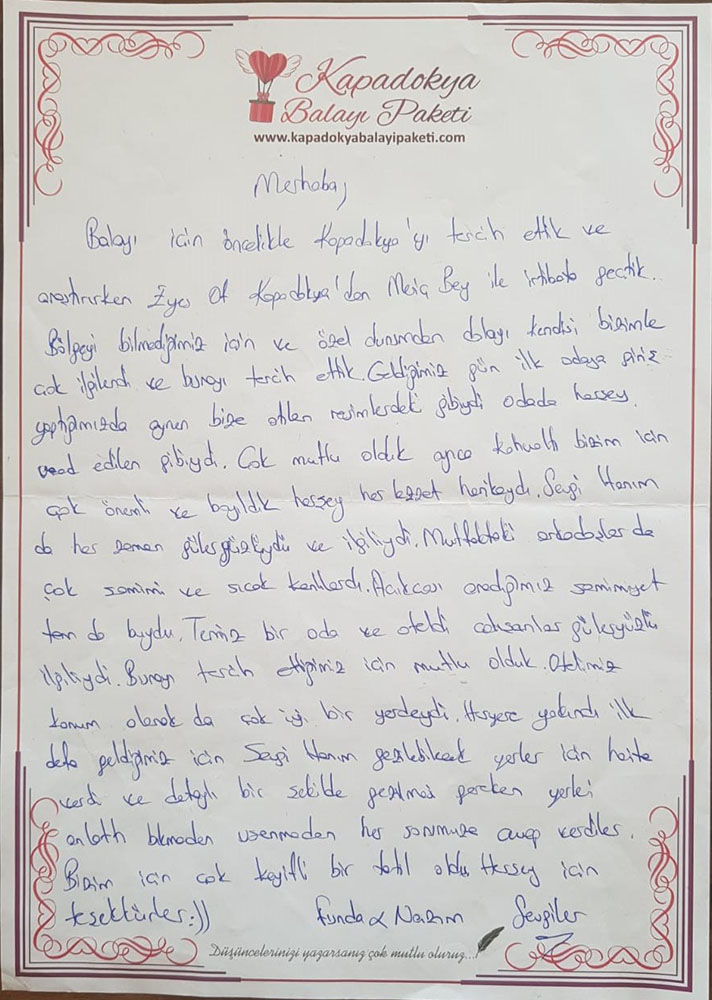 Kapadokya
Balayı Paketi
www.kapadokyabalayipaketi.com
Merhaba,
Balayı için öncelikle Kapadokya'yı tercih ettik ve
araştırırken Eyes Of Kapadokya'dan Meriç Bey ile irtibata geçtik.
Bölgeyi bilmediğimiz için ve özel durumdan dolayı kendisi bizimle
çok ilgilendi ve burayı tercih ettik. Geldiğimiz gün ilk odaya giriş
yaptığımızda aynen bize atılan resimlerdeki gibiydi odada herşey
vaad edilen gibiydi. Çok mutlu olduk ayrıca kahvaltı bizim için
çok önemli ve bayıldık herşey her lezzet harikaydı. Sevgi Hanım
da her zaman güleryüzlüydü ve ilgiliydi. Mutfaktaki arkadaşlar da
çok samimi ve sıcak kanlılardı. Açıkcası aradığımız samimiyet
tam da buydu. Temiz bir oda ve oteldi çalışanlar güleryüzlü
ilgiliydi. Burayı tercih ettiğimiz için mutlu olduk. Otelimiz
konum olarak da çok iyi bir yerdeydi. Heryere yakındı ilk
defa geldiğimiz için Sevgi Hanım gezilebilecek yerler için harita
verdi ve detaylı bir şekilde gezilmesi gereken yerleri
anlattı bıkmadan usanmadan her sorumuza cevap verdiler.
Bizim için çok keyifli bir tatil oldu. Herşey için
teşekkürler :)) Funda & Nazım Sevgiler
Düşüncelerinizi yazarsanız çok mutlu oluruz...